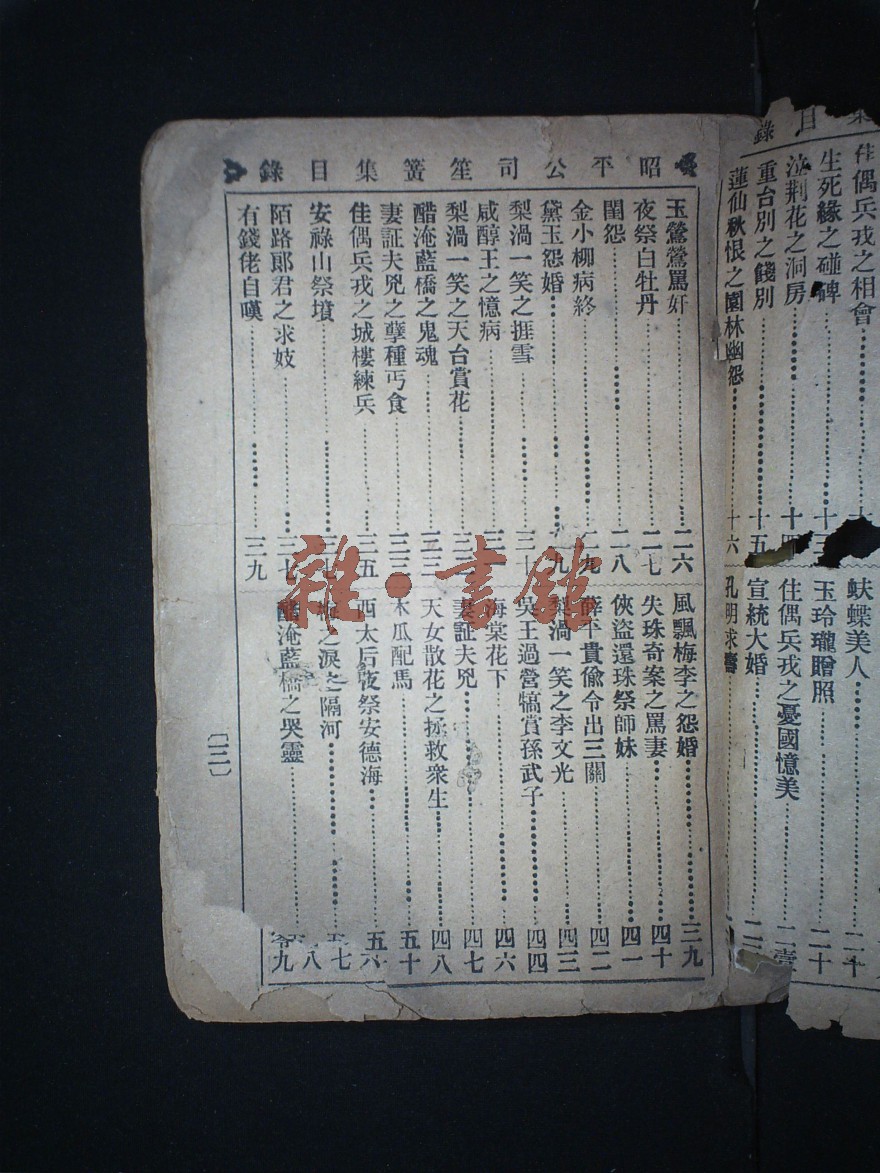 目錄
佳偶兵戎之相會
生死緣之碰碑
泣荆花之洞房
十四
重台別之餞別
十五
蓮仙秋恨之園林幽怨
十六
蚨蝶美人
玉玲瓏贈照
二十
佳偶兵戎之憂國憶美
宣統大婚
孔明求壽
昭平公司笙簧集目錄
玉鶯鶯罵奸
二六
夜祭白牡丹
二七
閨怨
二八
金小柳病終
二九
黛玉怨婚
梨渦一笑之捱雪
三十
咸醇王之憶病
三一
梨渦一笑之天台賞花
三二
醋淹藍橋之鬼魂
三三
妻証夫兇之孽種丐食
佳偶兵戎之城樓練兵
三五
安祿山祭墳
三七
陌路郎君之求妓
三七
有錢佬自嘆
三九
風飄梅李之怨婚
三九
失珠奇案之罵妻
四十
俠盜還珠祭師妹
四一
薛平貴偷令出三關
四二
梨渦一笑之李文光
四三
吳王過營犒賞孫武子
四四
海棠花下
四六
妻証夫兇
四七
天女散花之拯救衆生
四八
木瓜配馬
五十
西太后夜祭安德海
五六
之淚之隔河
醋淹藍橋之哭靈
〔三〕
雜·書館